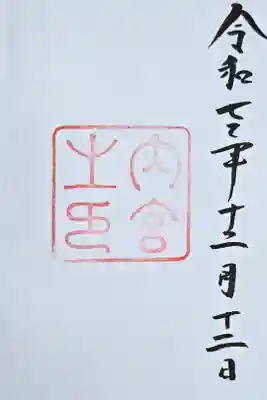 令和七年十二月十二日
内宮
之印